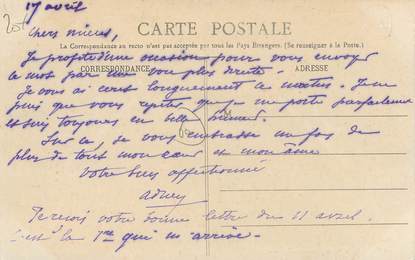 17 avril
Chers mieux,
CARTE POSTALE
La Correspondance au recto n'est pas acceptée par tous les Pays Étrangers. (Se renseigner à la Poste.)
CORRESPONDANCE
ADRESSE
Je profite d'une occasion pour vous envoyer
le mot par une voie plus directe.
Je vous ai écrit longuement ce matin. Je ne
puis que vous repéter que je me porte parfaitement
et suis toujours en belle humeur.
Sur ce, je vous embrasse une fois de
plus de tout mon cœur et mon âme
Votre bien affectionné
Je reçois votre bonne lettre du 11 avril.
C'est la 1re qui m'arrive.